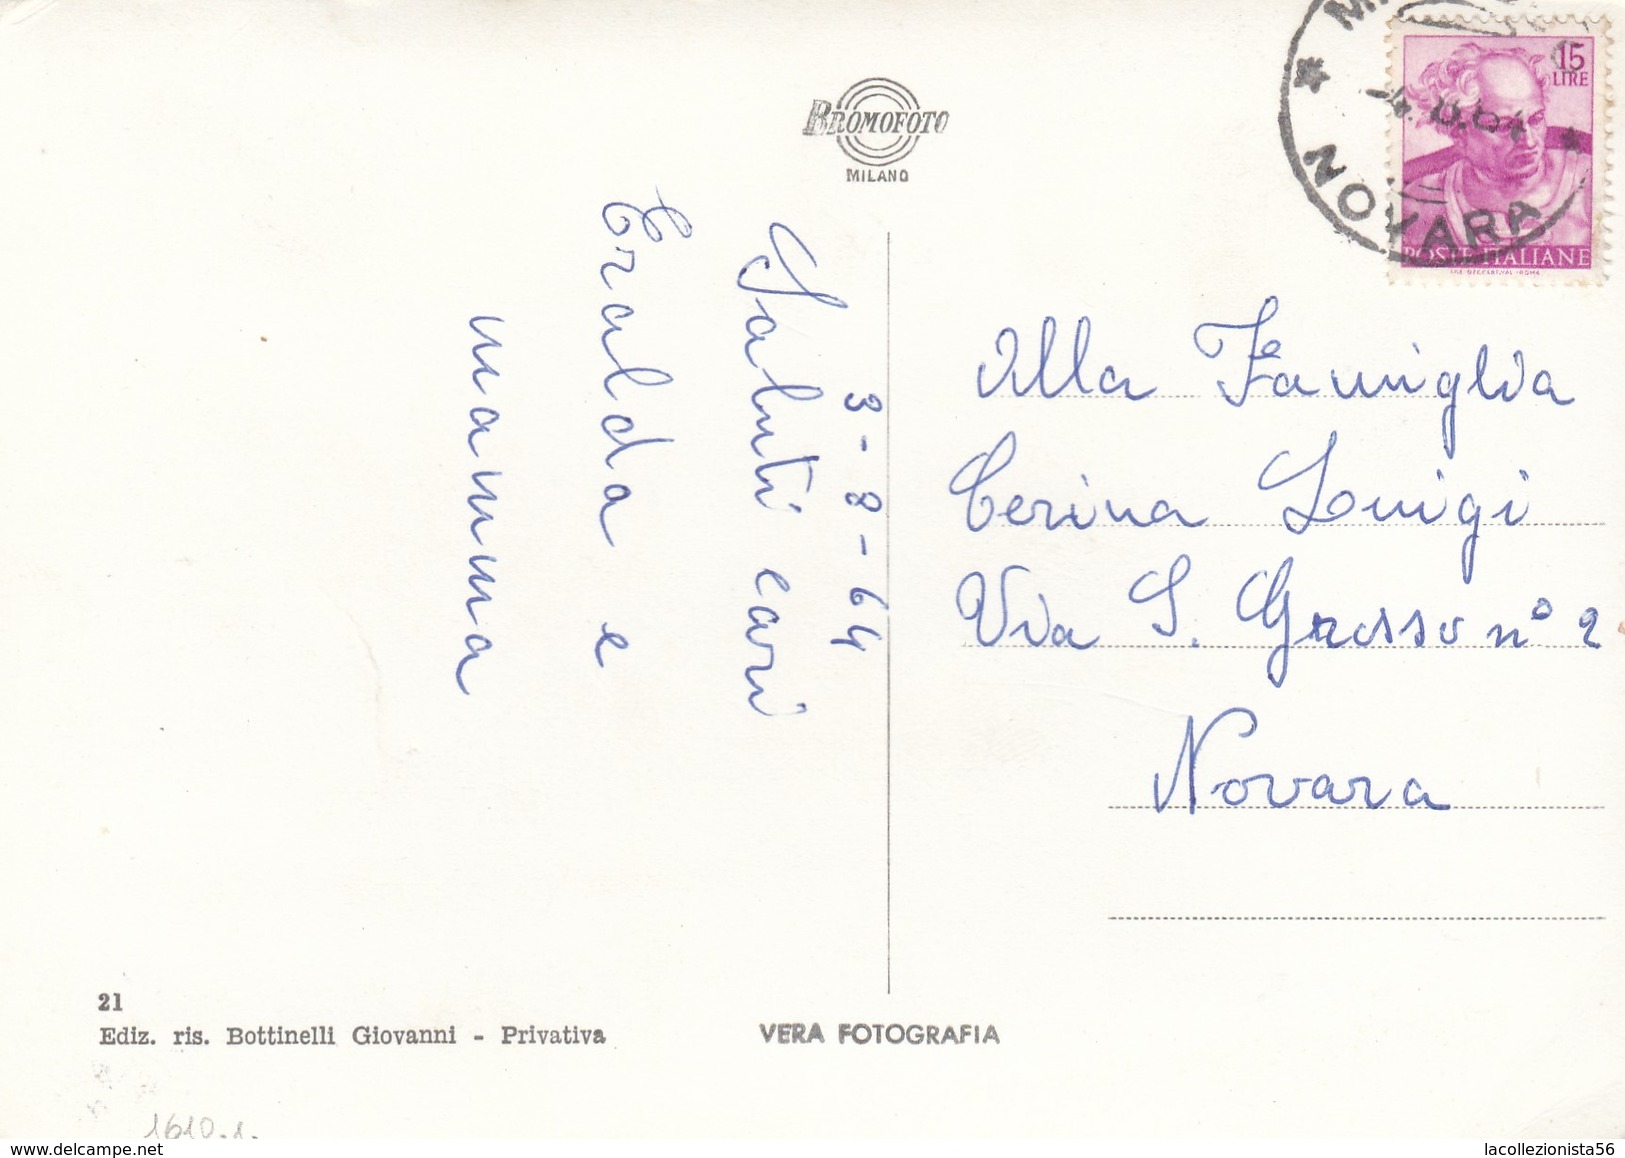 BROMOFOTO
MILANO
15
LIRE
NOVARA
POSTE ITALIANE
3-8-64
Saluti cari
Eralda e
mamma
Alla Famiglia
Cerina Luigi
Via S. Grosso n° 2
Novara
21
Ediz. ris. Bottinelli Giovanni - Privativa
VERA FOTOGRAFIA
1610.1.
delcampe.net
lacollezionista56